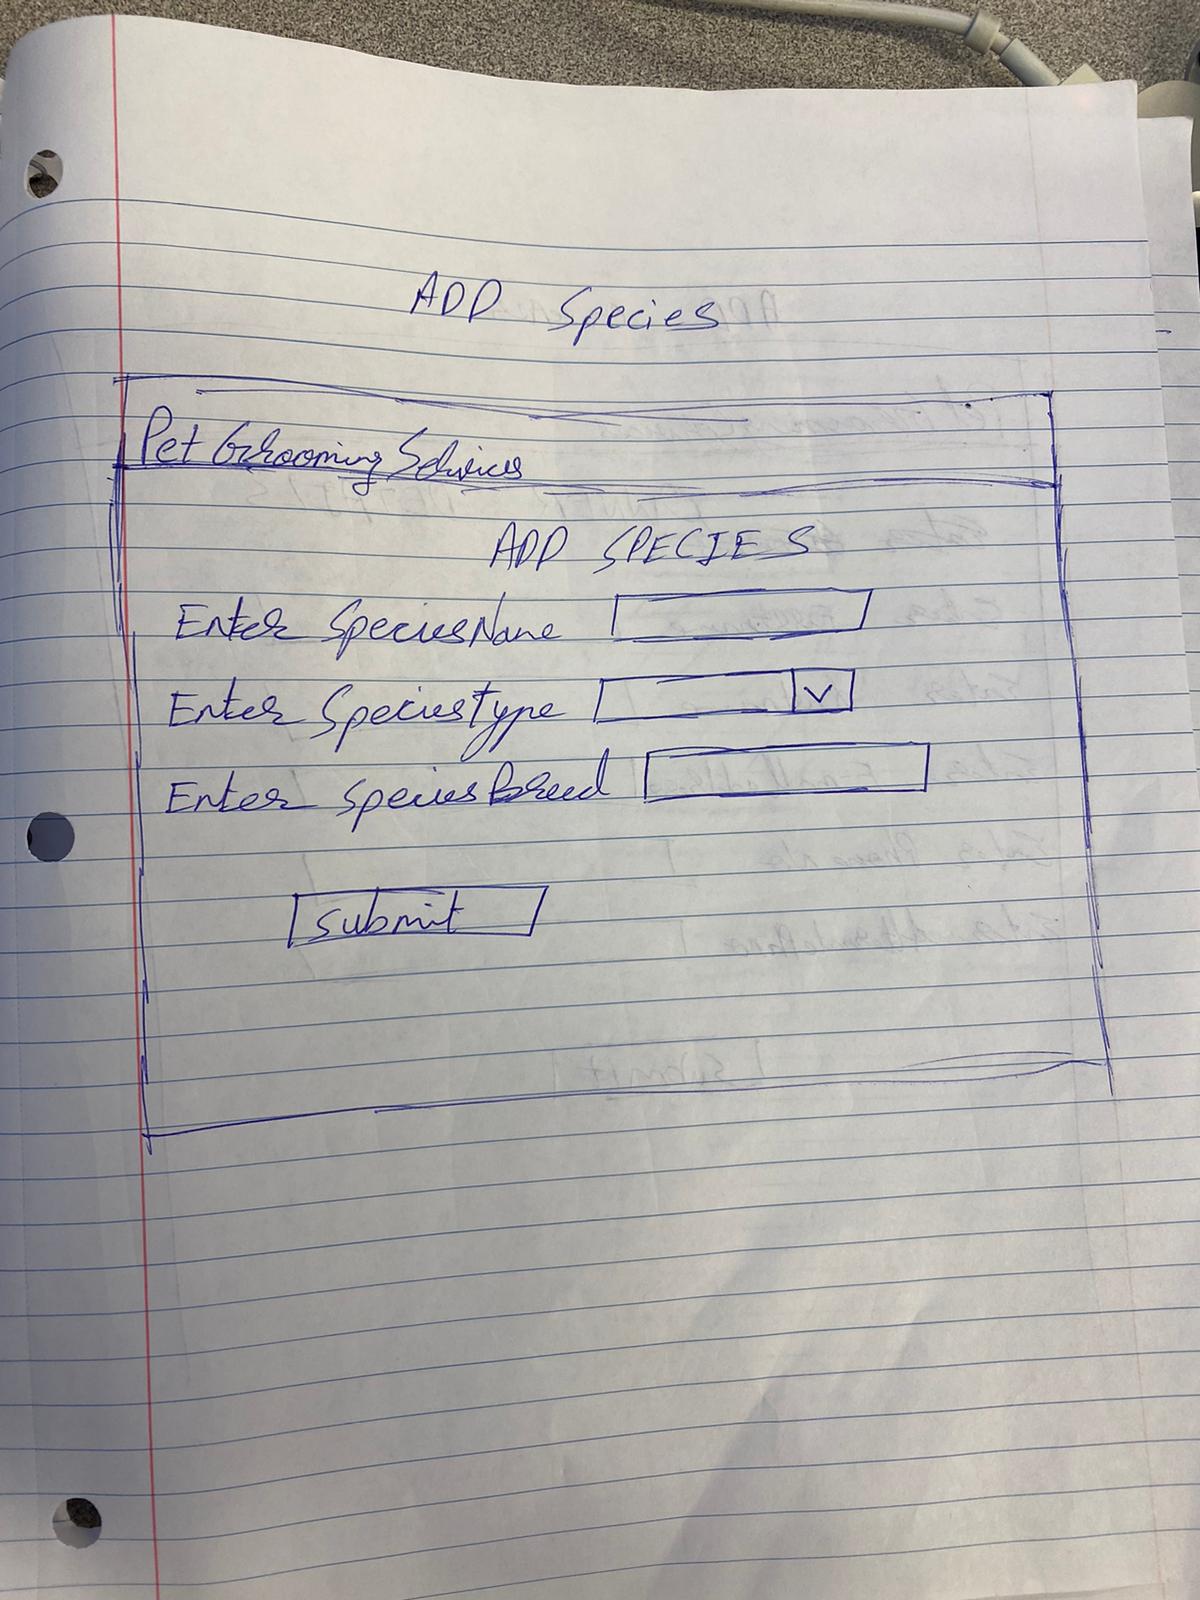 ADD Species
Pet Grooming Services
ADD SPECIES
Enter SpeciesName
Enter SpeciesType
Enter SpeciesBreed
Submit